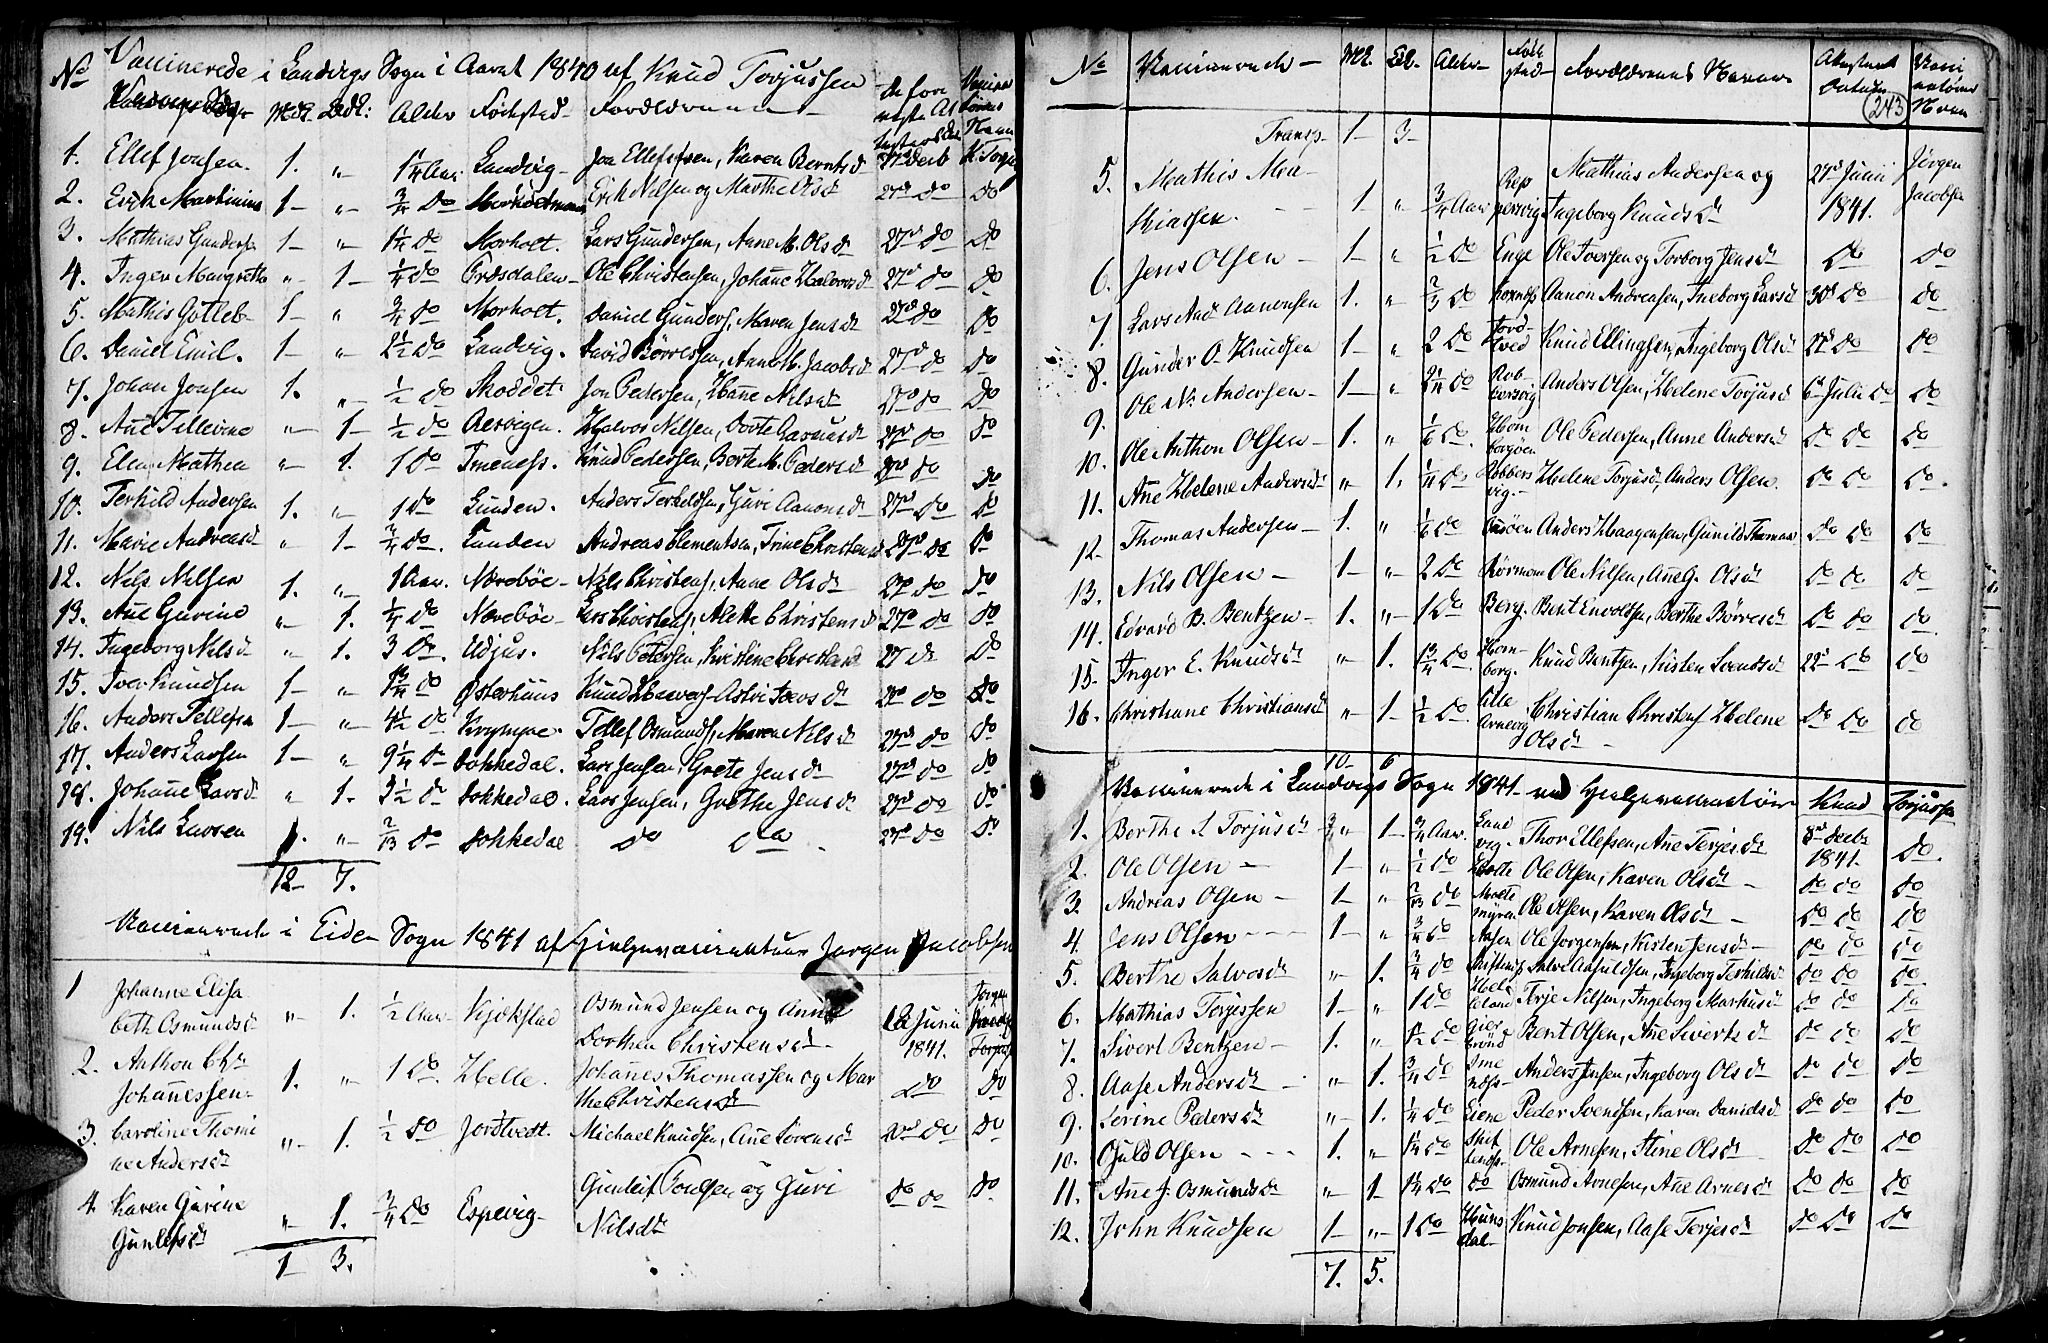 Vaccinerede i Landvigs Sogn i Aaret 1840 af Knud Torjussen
No Mdk. Qdk: Alder Födested Forældrene
1. Ellef Jonsen. 1. „ 1¼ Aar Landvig Jon Ellefsen, Karen Berntsd 27d Decb K. Torju
2. Erik Martinius 1 „ ¾ do Erik Nilsen og Marthe Olsd 27d do do
3. Mathias Gundersen 1 „ 1¼ do Morholt. Lars Gundersen, Anne M. Olsd 27d do do
4. Inger Margrethe „ 1 ¼ do Ole Christensen, Johanne Halvorsd 27d do do
5. Mathis Gotleb 1 „ ¾ do Morholt. Daniel Gunders, Maren Jensd 27d do do
6. Daniel Emil. 1 „ 2½ do Landvig. David Börresen, Anne M. Jacobsd 27d do do
7. Johan Jonsen 1. „ ½ do Skoddet Jon Pedersen, Hanne Nilsd 27d do do
8. Ane Tellevine „ 1 ½ do Halvor Nilsen, Dorte 27d do do
9. Elen Mathea „ 1. 1 do Imenes. Knud Pedersen, Berte M. Pedersd 27d do do
10. Terkild Andersen 1. „ 1 do Lunden. Anders Terkeldsen, Guri Aanonsd 27d do do
11. Marie Andreasd „ 1 ¾ do. Lunden Andreas Clementsen, Trine Christensd 27d do do
12. Nils Nilsen 1. „ 1 Aar. Nöreböe Nils Christens, Anne Olsd 27d do do
13. Ane Gurine „ 1. ¼ do Nöreböe Lars Christens, Alette Christensd 27d do do
14. Ingeborg Nilsd „ 1. 3 do. Udjus. Nils Petersen, Kirstine 27 do do
15. Iver Knudsen 1 „ 1¾ do Österhuus Knud 27d do do
16. Anders Tellefsen 1 „ 4½ do Krympe. Tellef Osmunds, Maren Nilsd 27d do do
17. Anders Larsen 1 „ 9¼ do Dokkedal. Lars Jensen, Grete Jensd 27d do do
18. Johanne Larsd „ 1. 3½ do Dokkedal. Lars Jensen, Grethe Jensd 27d do do
19. Nils Larsen 1. „ 2/13 do Dokkedal do do 27d do do
12 7.
Vaccinerede i Eide Sogn 1841 af Hielpevaccinateur Jörgen Jacobsen
1 Johanne Elisa
beth Osmundsd „ 1. ½ Aar Kjökstad Osmund Jensen og Anne
Dorthea Christensd Junii 1841.
2. Anthon Chr
Johannessen 1. „ 1 do Helle. Johannes Thomassen og Mar
the Christensd do do
3. Caroline Thomi
ne Andersd „ 1. ½ do Jortvedt. Michael Knudsen, Ane Sörensd do do
4. Karen Gurine
Gunlefsd „ 1. ¾ do Espevig Gunleif Toresen og Guri
Nilsd do do do
1 3.
No Vaccinerede Mk. Qk. Alder Föde
sted Forældrenes Navne Attestens
Datum Vacci
natörens
Navn
243
Transp. 1 3
5. Mathis Ma
thiassen. 1 „ ¾ Aar Mathias Andersen og
Ingeborg Knudsd 27d Junii
1841. Jörgen
Jacobsen
6. Jens Olsen 1 „ ½ do Enge Ole Iversen og Torborg Jensd do do
7. Lars And. Aanonsen 1. „ ¾ do Aanon Andreasen, Ingeborg Larsd 30d do do
8. Gunder O. Knudsen 1 „ 2 do Jord-
tved Knud Ellingsen, Ingeborg Olsd 27d do do
9. Ole N. Andersen 1 „ 2¼ do Rob-
bersvig Anders Olsen, Helene Torjusd 6d Julii do do
10. Ole Anthon Olsen 1. „ ⅙ do. Hom
borgöen Ole Pedersen, Anne Andersd do do do
11. Ane Helene Andersd „ 1. ¼ do Robbers
vig. Helene Torjusd, Anders Olsen. do do do.
12 Thomas Andersen 1. „ ⅙ do Anders Haagensen, Gunild Thomasd do do do
13. Nils Olsen 1 „ 2 do Ole Nilsen, Ane G. Olsd do do do
14. Edvard B. Bentzen 1. „ 1 do Berg. Bent Envoldsen, Berthe Börresd do do do
15. Inger E. Knudsd „ 1. 1¾ do. Hom-
borg. Knud Bentzen, Kisten Svendsd 22d do do
16. Christiane Christiansd „ 1 ½ do. Lille
Arnevig Christian Christens Helene
Olsd do do do
10 6
Vaccinerede i Landvigs Sogn 1841 ved Hielpevaccinatör Knud Torjussen
1. Berthe S. Torjusd „ 1 ¾ Aar. Land
vig. Thor Ellefsen, Ane Terjesd 8d Decb
1841. do.
2. Ole Olsen 1 „ ½ do Ole Olsen, Karen Olsd do do do
3. Andreas Olsen 1 „ 2/13 do Molte
myren Ole Olsen, Karen Olsd do do do
4. Jens Olsen 1 „ ¾ do Aasen Ole Jorgensen, Kisten Jensd do do do
5. Berthe Salvesd „ 1. ¾ do Salve Aasuldsen, Ingeborg Terkildsd do do do
6. Mathias Terjessen 1 „ 1 do Terje Nilsen, Ingeborg Markusd do do do
7. Sivert Bentzen 1. „ 1½ do Gier
brönd Bent Olsen, Ane Sivertsd do do do
8. Aase Andersd „ 1. ¾ do Ime
næs. Anders Jensen, Ingeborg Olsd do do do
9. Serine Pedersd „ 1. ¼ do Eiene Peder Svendsen, Karen Danielsd do do do
10. Ould Olsen 1. „ 1¼ do Ole Arnesen, Stine Olsd do do do
11. Ane J. Osmundsd „ 1 1¼ do do Osmund Arnesen, Ane Arnesd do do do
12. John Knudsen 1 „ 1 do Huns
dal Knud Jonsen, Aase Terjesd do do do
7. 5.